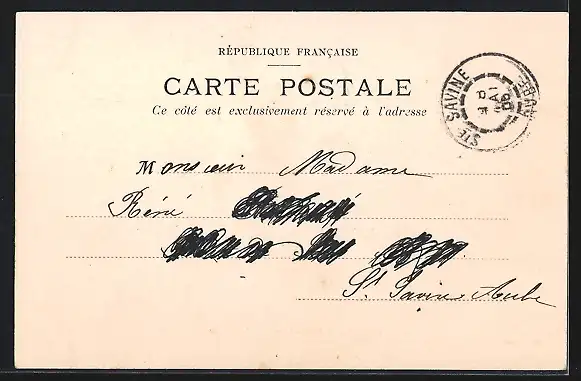 RÉPUBLIQUE FRANÇAISE
CARTE POSTALE
Ce côté est exclusivement réservé à l'adresse
STE SAVINE AUBE
Monsieur Madame
Réné
St Savine Aube